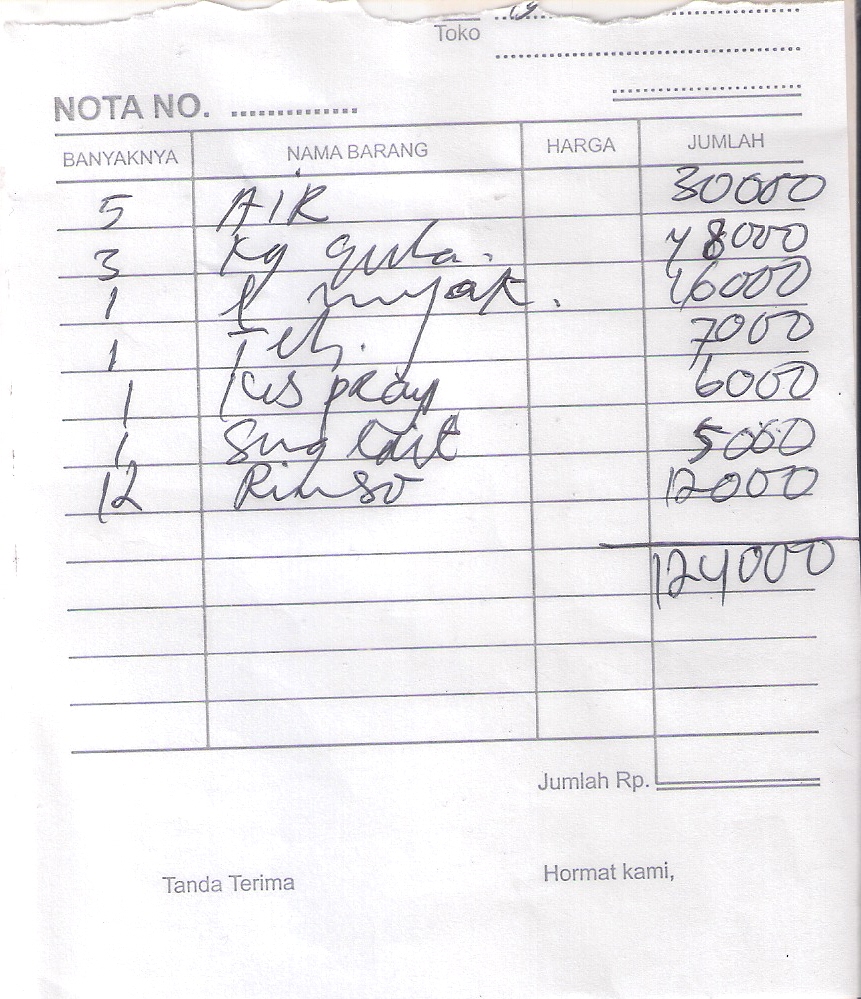 Toko
NOTA NO.
BANYAKNYA NAMA BARANG HARGA JUMLAH
5 AIR 30000
3 Kg gula. 48000
1 l minyak. 16000
1 Teh. 7000
1 Kispray 6000
1 5000
12 Rinso 12000
124000
Jumlah Rp.
Tanda Terima Hormat kami,